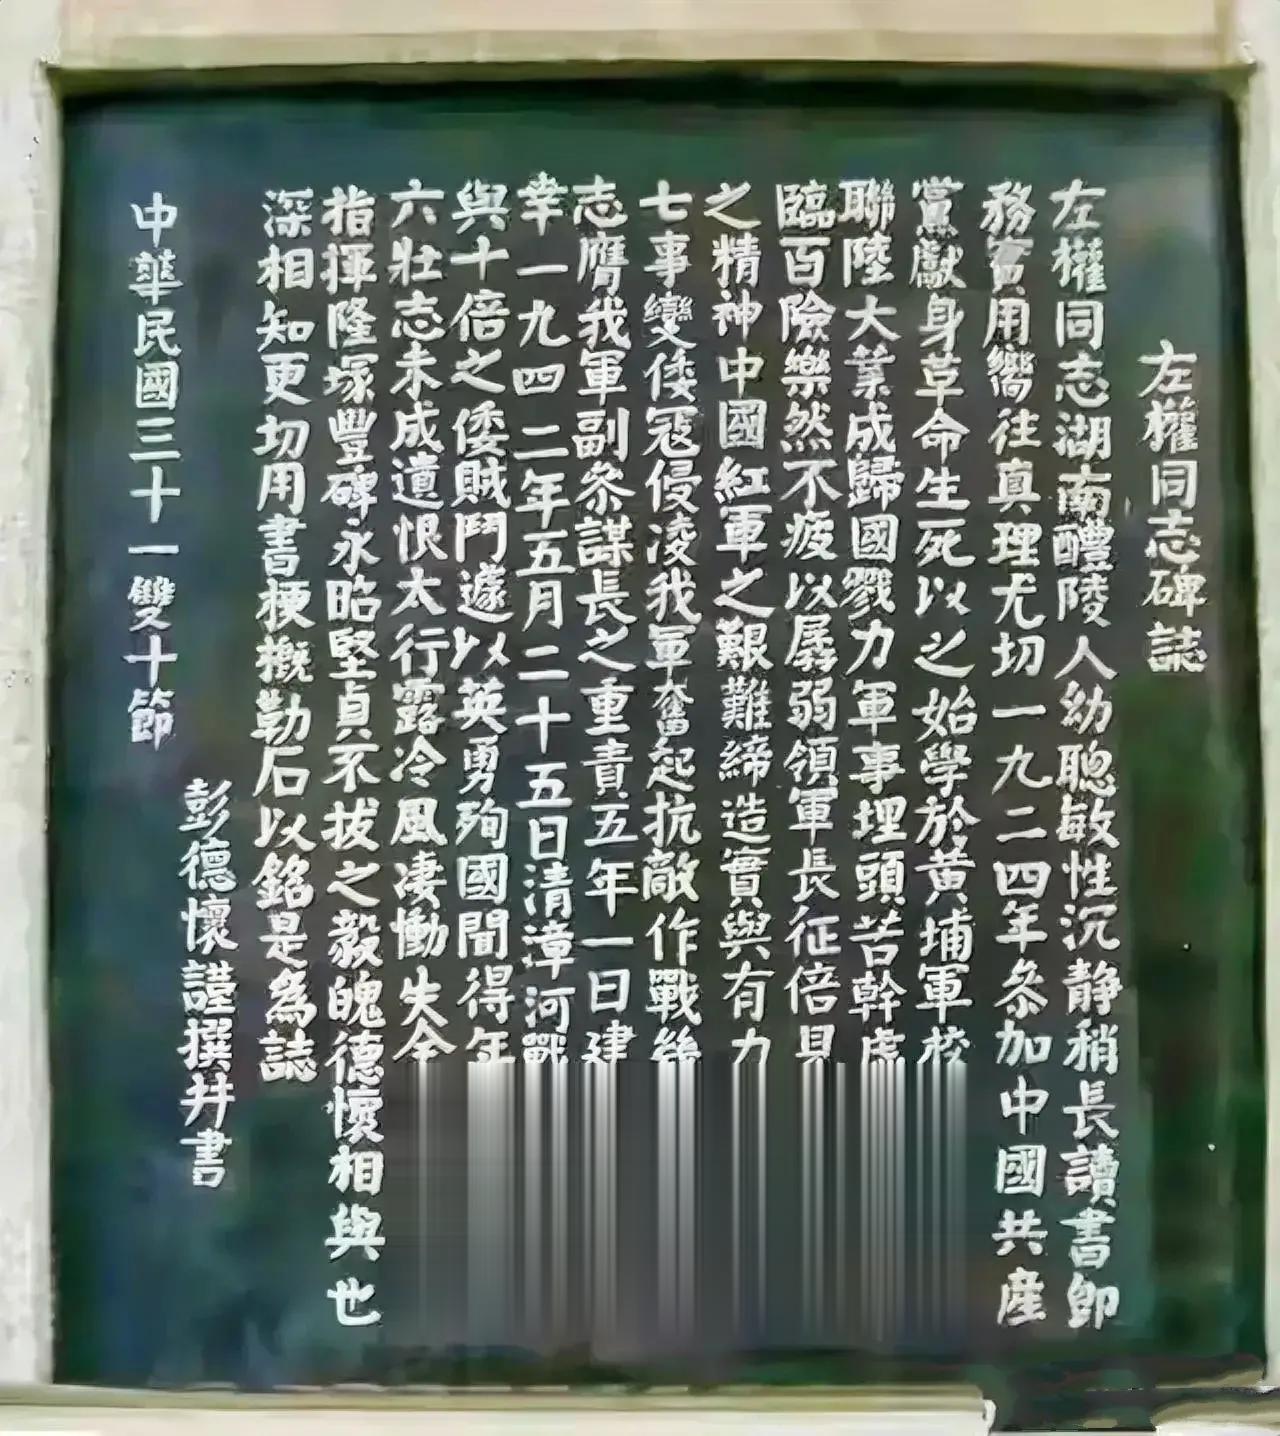 左權同志碑誌
左權同志湖南醴陵人幼聰敏性沉静稍長讀書即
務實用嚮往真理尤切一九二四年参加中國共産
黨獻身革命生死以之始學於黄埔軍校
聯陸大業成歸國戮力軍事埋頭苦幹
臨百險樂然不疲以孱弱領軍長征倍
之精神中國紅軍之艱難締造實與有力
七事變倭寇侵凌我軍奮起抗敵作戰
志膺我軍副参謀長之重責五年一日建
幸一九四二年五月二十五日清漳河戰
與十倍之倭賊鬥遽以英勇殉國聞得年
六壯志未成遺恨太行露冷風凄慟失全
指揮隆塚豐碑永昭堅貞不拔之毅魄德懷相與也
深相知更切用書梗概勒石以銘是為誌
彭德懷謹撰并書
中華民國三十一雙十節